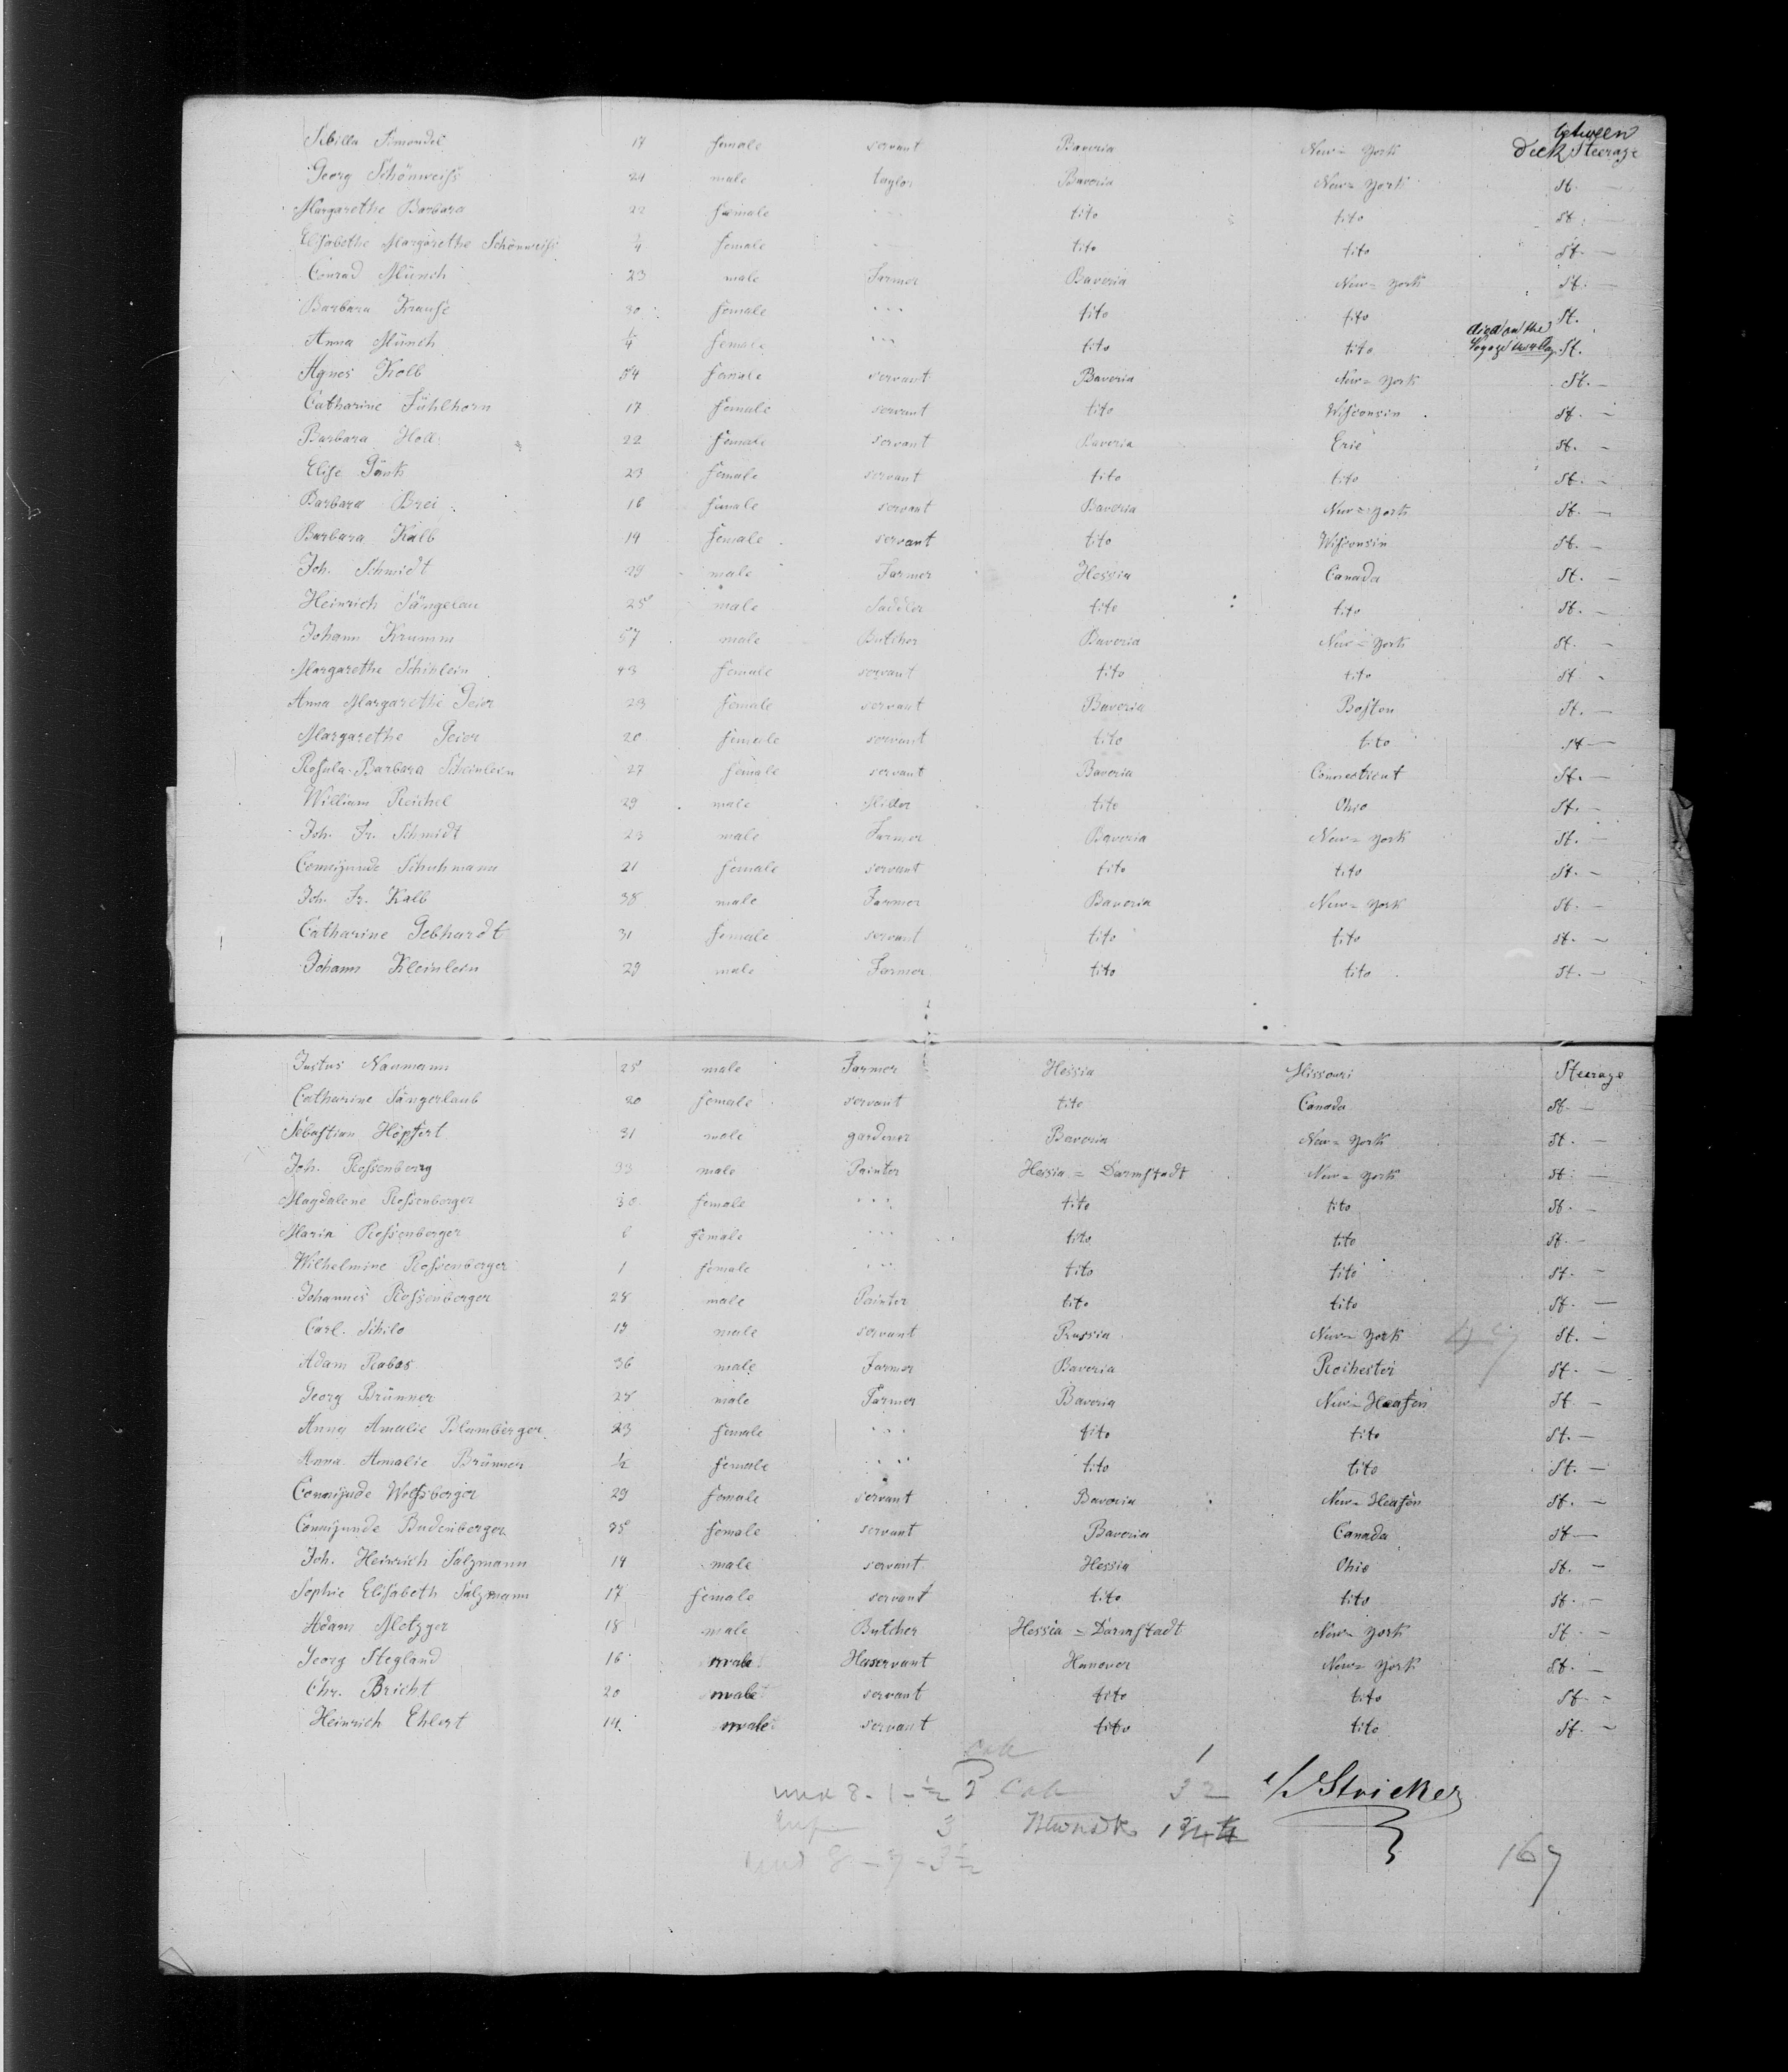 between
Sibilla Simondel 17 female servant Bavaria New=York Deck Steerage
Georg Schönweiſs 24 male taylor Bavaria New=York St. —
Margarethe Barbara 22 female tito tito St. —
Elisabethe Margarethe Schönweiſs ¼ female tito tito St. —
Conrad Münch 23 male Farmer Bavaria New=York St. —
Barbara Krauſe 30 female . . . tito tito St.
died on the
Anna Münch ¼ female . . . tito tito Voyage St.
Agnes Kolb 54 female servant Bavaria New=York St. —
Catharine Fühlhorn 17 female servant tito Wiſconsin St. —
Barbara Holl 22 female servant Bavaria Erie St. —
Eliſe Gänk 23 female servant tito tito St. —
Barbara Brei 16 female servant Bavaria New=York St. —
Barbara Kalb 19 female servant tito Wiſconsin St. —
Joh. Schmidt 29 male Farmer Hessia Canada St. —
Heinrich Sängelau 25 male Saddler tito tito St. —
Johann Krumm 57 male Butcher Bavaria New=York St. —
Margarethe Schihlein 43 female servant tito tito St —
Anna Margarethe Geier 23 female servant Bavaria Boſton St. —
Margarethe Geier 20 female servant tito tito St —
Roſula Barbara Scheinlein 27 female servant Bavaria Connecticut St. —
William Reichel 29 male Miller tito Ohio St. —
Joh. Fr. Schmidt 23 male Farmer Bavaria New=York St. —
Connigunde Schuhmann 21 female servant tito tito St. —
Joh. Fr. Kalb 38 male Farmer Bavaria New=York St. —
Catharine Gebhardt 31 female servant tito tito St. —
Johann Kleinlein 29 male Farmer tito tito St. —
Justus Naumann 25 male Farmer Hessia Missouri Steerage
Catharine Sängerlaub 20 female servant tito Canada St. —
Sebaſtian Höpfert 31 male gardener Bavaria New=York St. —
Joh. Roſsenberg 33 male Painter Hessia=Darmſtadt New=York St. —
Magdalene Roſsenberger 30 female . . . tito tito St. —
Maria Roſsenberger female . . . tito tito St. —
Wilhelmine Roſsenberger 1 female . . . tito tito St. —
Johannes Roſsenberger 28 male Painter tito tito St. —
Carl. Schilo 19 male servant Prussia New=York St. —
Adam Rabas 36 male Farmer Bavaria Rochester St. —
Georg Brünner 28 male Farmer Bavaria New=Heaſen St —
Anna Amalie Blumberger 23 female . . . tito tito St. —
Anna Amalie Brünner ½ female . . . . tito tito St. —
Connigunde Wolfsberger 29 female servant Bavaria New=Heaſen St. —
Connigunde Budenberger 35 female servant Bavaria Canada St —
Joh. Heinrich Salzmann 14 male servant Hessia Ohio St. —
Sophie Eliſabeth Salzmann 17 female servant tito tito St. —
Adam Metzger 18 male Butcher Hessia=Darmſtadt New=York St. —
Georg Stegland 16 male servant Hanover New=York St. —
Chr. Bricht 20 male servant tito tito St. —
Heinrich Ehlert 14. male servant tito tito St. —
Cab 1
und 8 - 1 - ½ 2 Cab 32 Stricker
3
167
und 8 - 7 - 3½